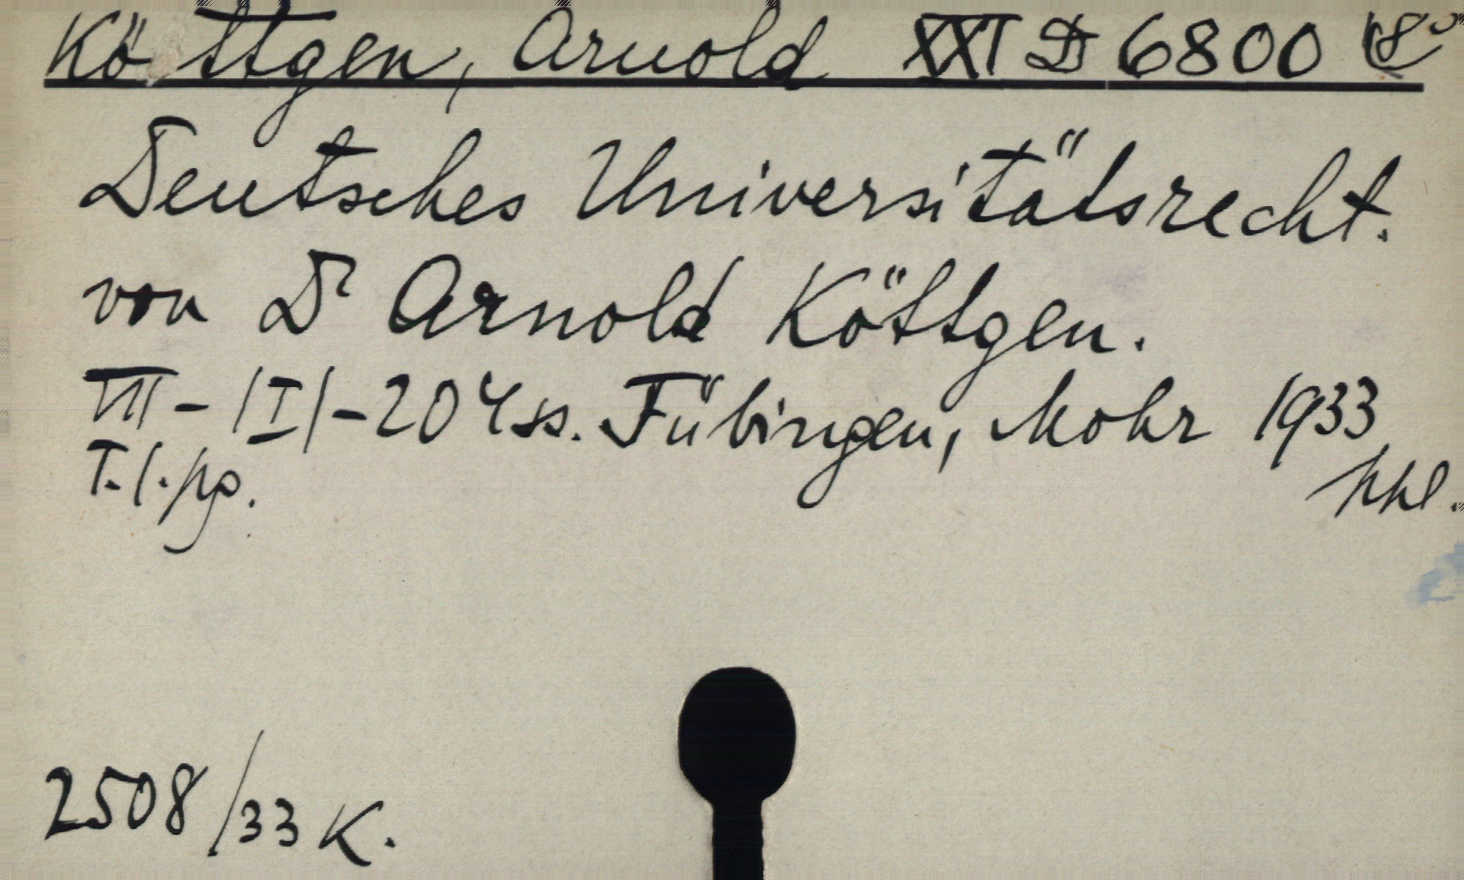 Köttgen, Arnold XXI D 6800 (8°
Deutsches Universitätsrecht.
von Dr Arnold Köttgen.
VIII – /I/ – 204 ss. Tübingen, Mohr 1933
T. l. pg.
2508/33 K.